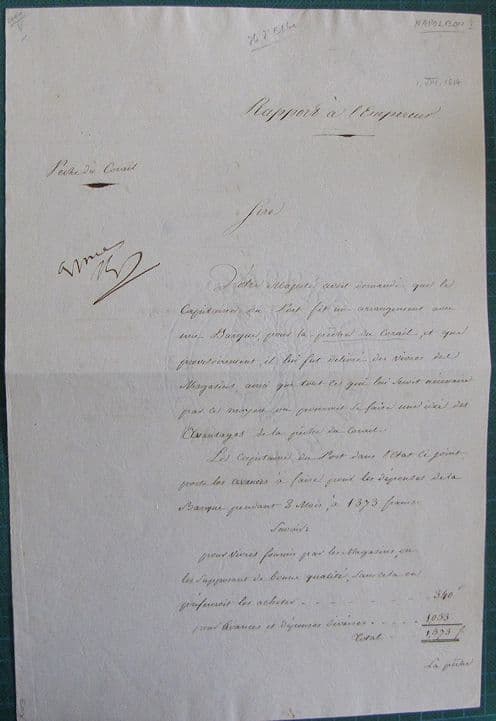 Ile d'Elbe
NAPOLEON I
1. VII. 1814
Rapport à l'Empereur
Pêche du Corail
Sire
Votre Majesté avait demandé que le
Capitaine du Port fit un arrangement avec
une Barque, pour la pêche du Corail, et que
provisoirement il lui fut délivré des vivres des
Magasins ainsi que tout ce qui lui serait nécessaire
par ce moyen on pourrait se faire une idée des
Avantages de la pêche du Corail.
Le Capitaine du Port dans l'Etat ci joint
porte les avances à faire pour les dépenses de la
Barque pendant 3 Mois, à 1373 francs.
Savoir:
pour vivres fournis par les Magasins, en
les supposant de bonne qualité, sans cela on
préferoit les acheter - - - - - 340 f
pour Avances et dépenses diverses - - - - 1033
Total - 1373 f
La pêche